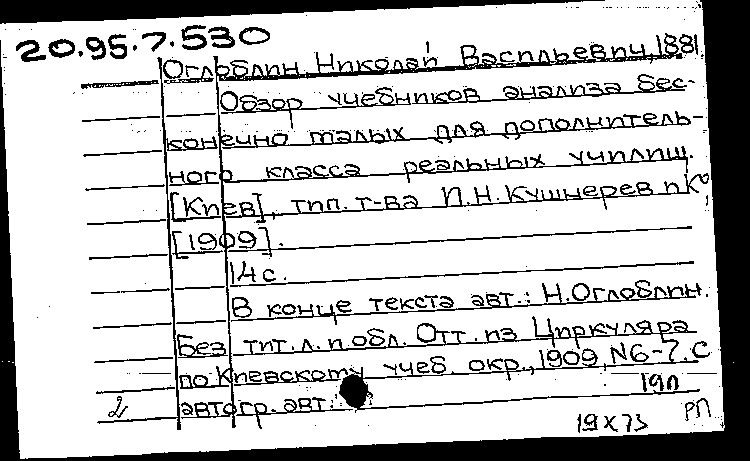 20.95.7.530
Оглоблин, Николай Васильевич, 1881.
Обзор учебников анализа бес-
конечно малых для дополнитель-
ного класса реальных училищ.
[Киев], тип. т-ва И.Н.Кушнерев и К°,
[1909].
14 с.
В конце текста авт.: Н.Оглоблин.
Без тит.л.и обл. Отт. из Циркуляра
по Киевскому учеб. окр., 1909, N6-7. С
автогр. авт.
19П
2
19X73 РП